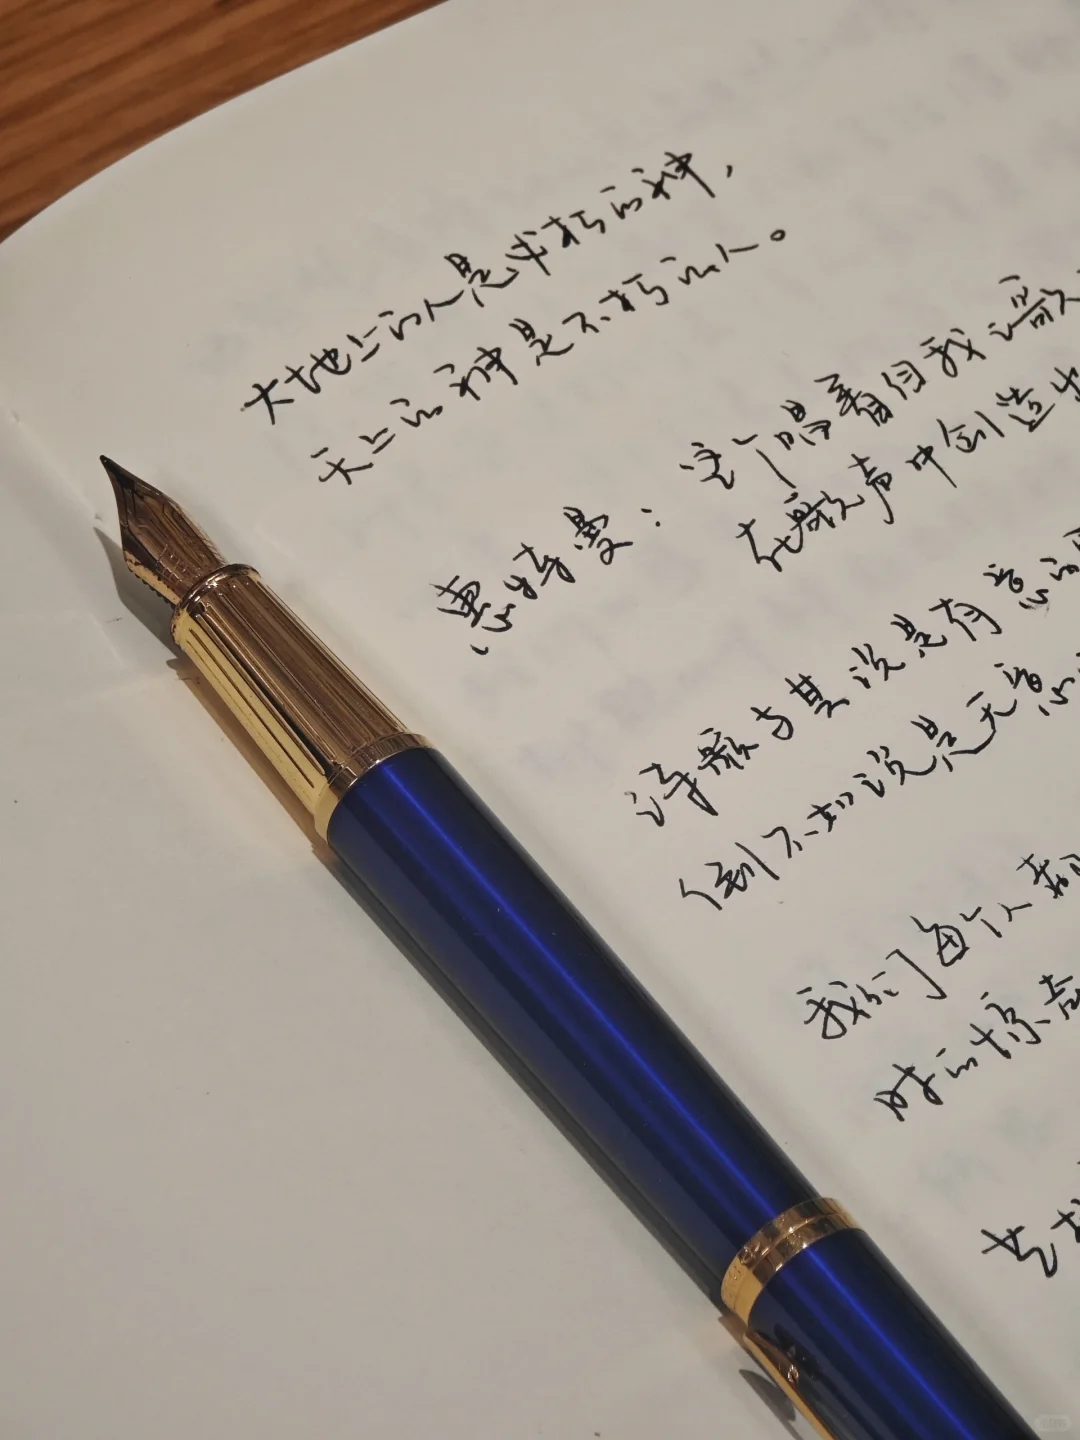 大地上的人是必朽的神，
天上的神是不朽的人。
惠特曼：它们唱着自我之歌
在歌声中创造出
诗歌与其说是有意的
倒不如说是无意
我们每个人都
时的惊奇
艺术